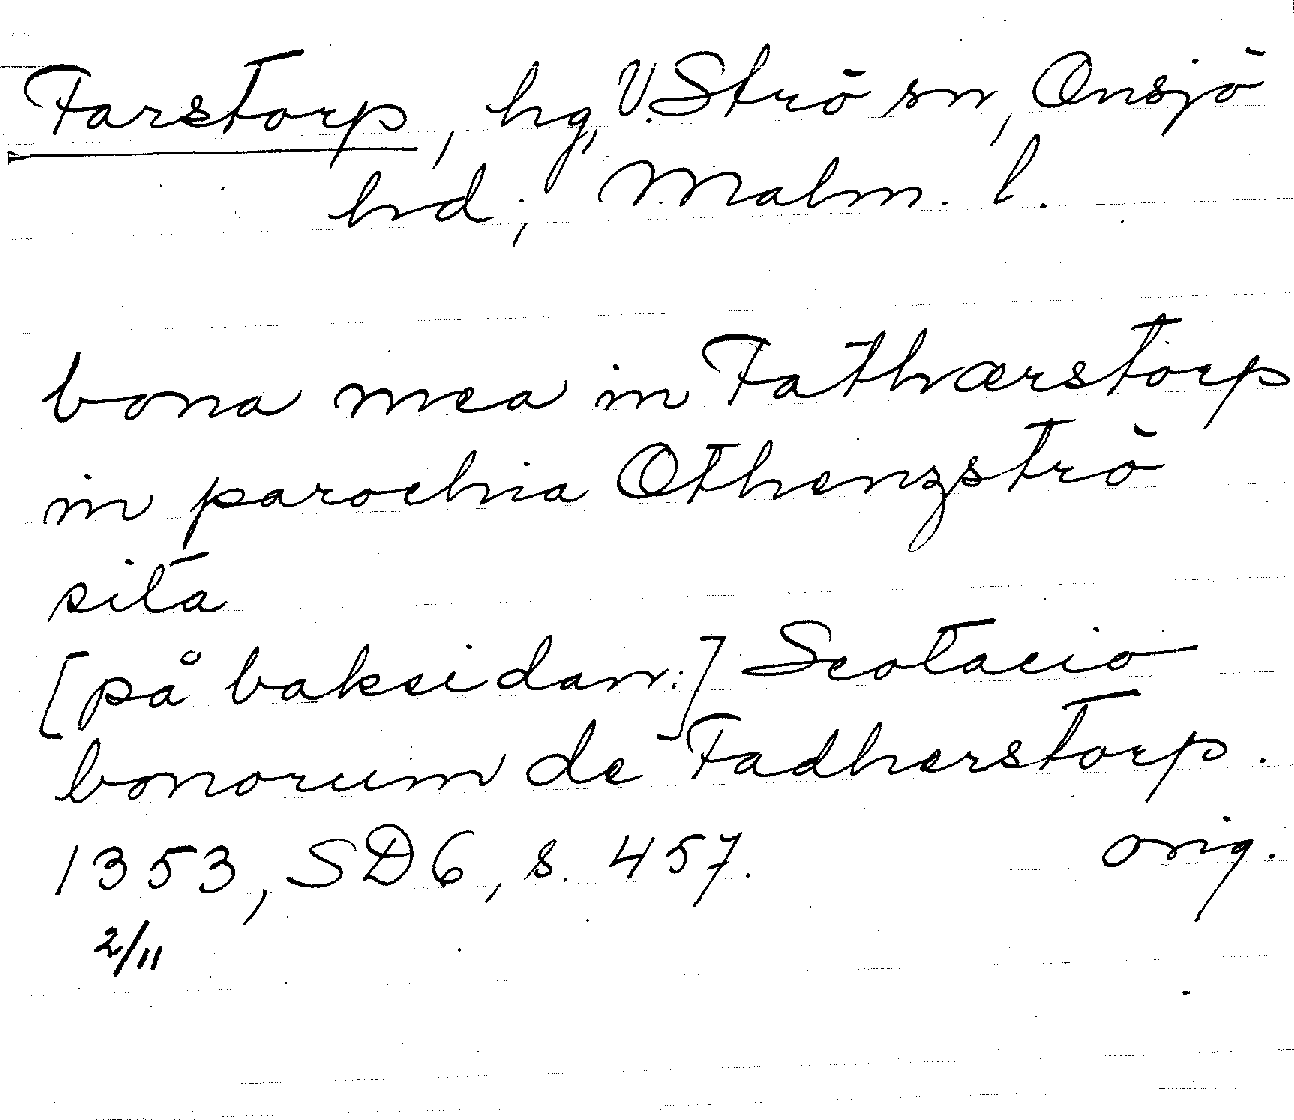 Farstorp, hg, V. Strö sn, Onsjö
hd, Malm. l.
bona mea in Fathærstorp
in parochia Othenzströ
sita
[på baksidan:] Scotacio
bonorum de Fadherstorp.
1353, SD 6, s. 457. orig.
2/11